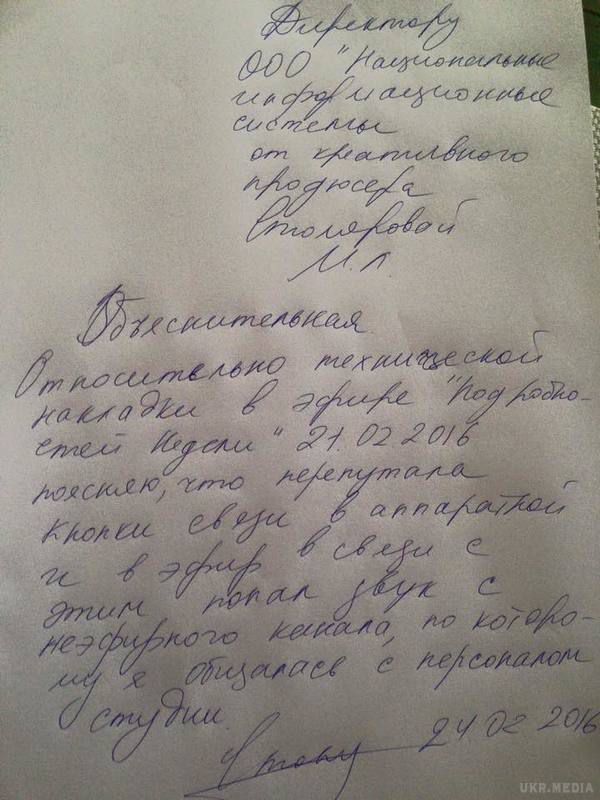 Директору
ООО "Национальные
информационные
системы
от креативного
продюсера
Столяровой
М.Л.
Объяснительная.
Относительно технической
накладки в эфире "Подробно-
стей Недели" 21.02 2016
поясняю, что перепутала
кнопки связи в аппаратной
и в эфир в связи с
этим попал звук с
неэфирного канала, по которо-
му я общалась с персоналом
студии.
24 02 2016
UKR.MEDIA